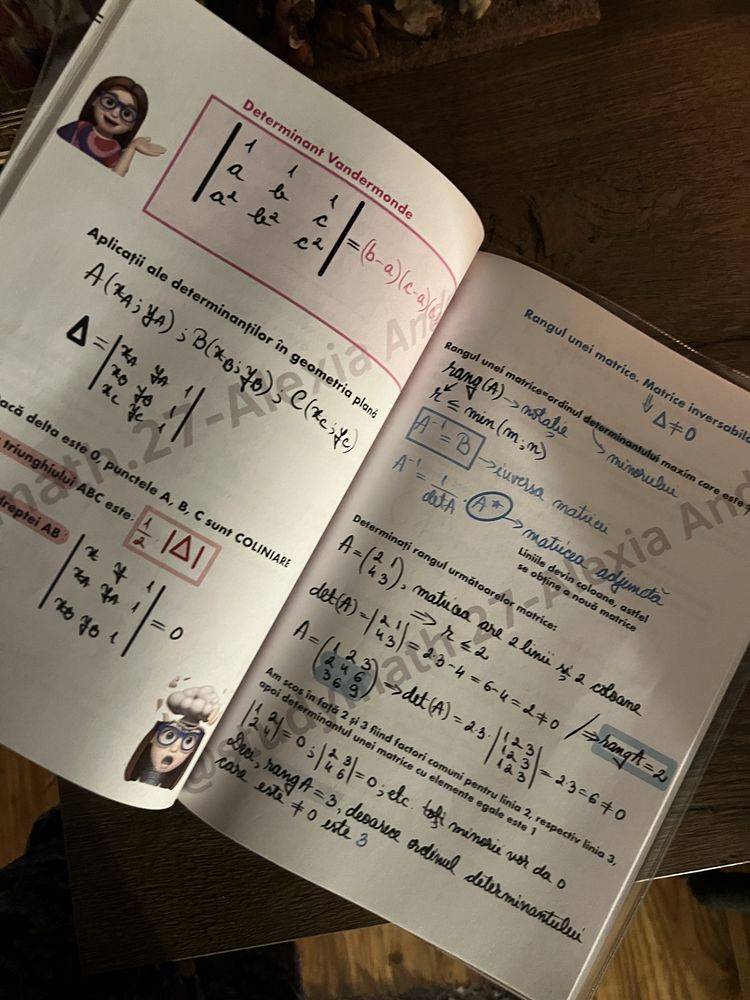 Determinant Vandermonde
| 1 1 1 |
| a b c |
| a² b² c² | = (b-a)(c-a)(
Aplicații ale determinanților în geometria plană
A(xA; yA) ; B(xB; yB) ; C(xC; yC)
Δ = | xA yA 1 |
| xB yB 1 |
| xC yC 1 |
acă delta este 0, punctele A, B, C sunt COLINIARE
triunghiului ABC este: 1/2 · |Δ|
dreptei AB:
| x y 1 |
| xA yA 1 |
| xB yB 1 | = 0
Rangul unei matrice. Matrice inversabil
⇓
Δ ≠ 0
Rangul unei matrice=ordinul determinantului maxim care este
rang(A) → notație
minorului
r ≤ min(m;n)
A⁻¹ = B → inversa matricii
A⁻¹ = 1/detA · A* → matricea adjunctă
Liniile devin coloane, astfel
se obține o nouă matrice
Determinați rangul următoarelor matrice:
A = (2 1
4 3), matricea are 2 linii și 2 coloane
⇒ r ≤ 2
det(A) = |2 1
4 3| = 2·3-4 = 6-4 = 2 ≠ 0 / ⇒ rangA = 2
A = (1 2 3
2 4 6
3 6 9) ⇒ det(A) = 2·3· |1 2 3
1 2 3
1 2 3| = 2·3 = 6 ≠ 0
Am scos în față 2 și 3 fiind factori comuni pentru linia 2, respectiv linia 3,
apoi determinantul unei matrice cu elemente egale este 1
|1 2
2 4| = 0 ; |2 3
4 6| = 0 ; etc. toți minorii vor da 0
Deci, rangA = 3, deoarece ordinul determinantului
care este ≠ 0 este 3
math.27-Alexia And
@studymath.27-Alexia And